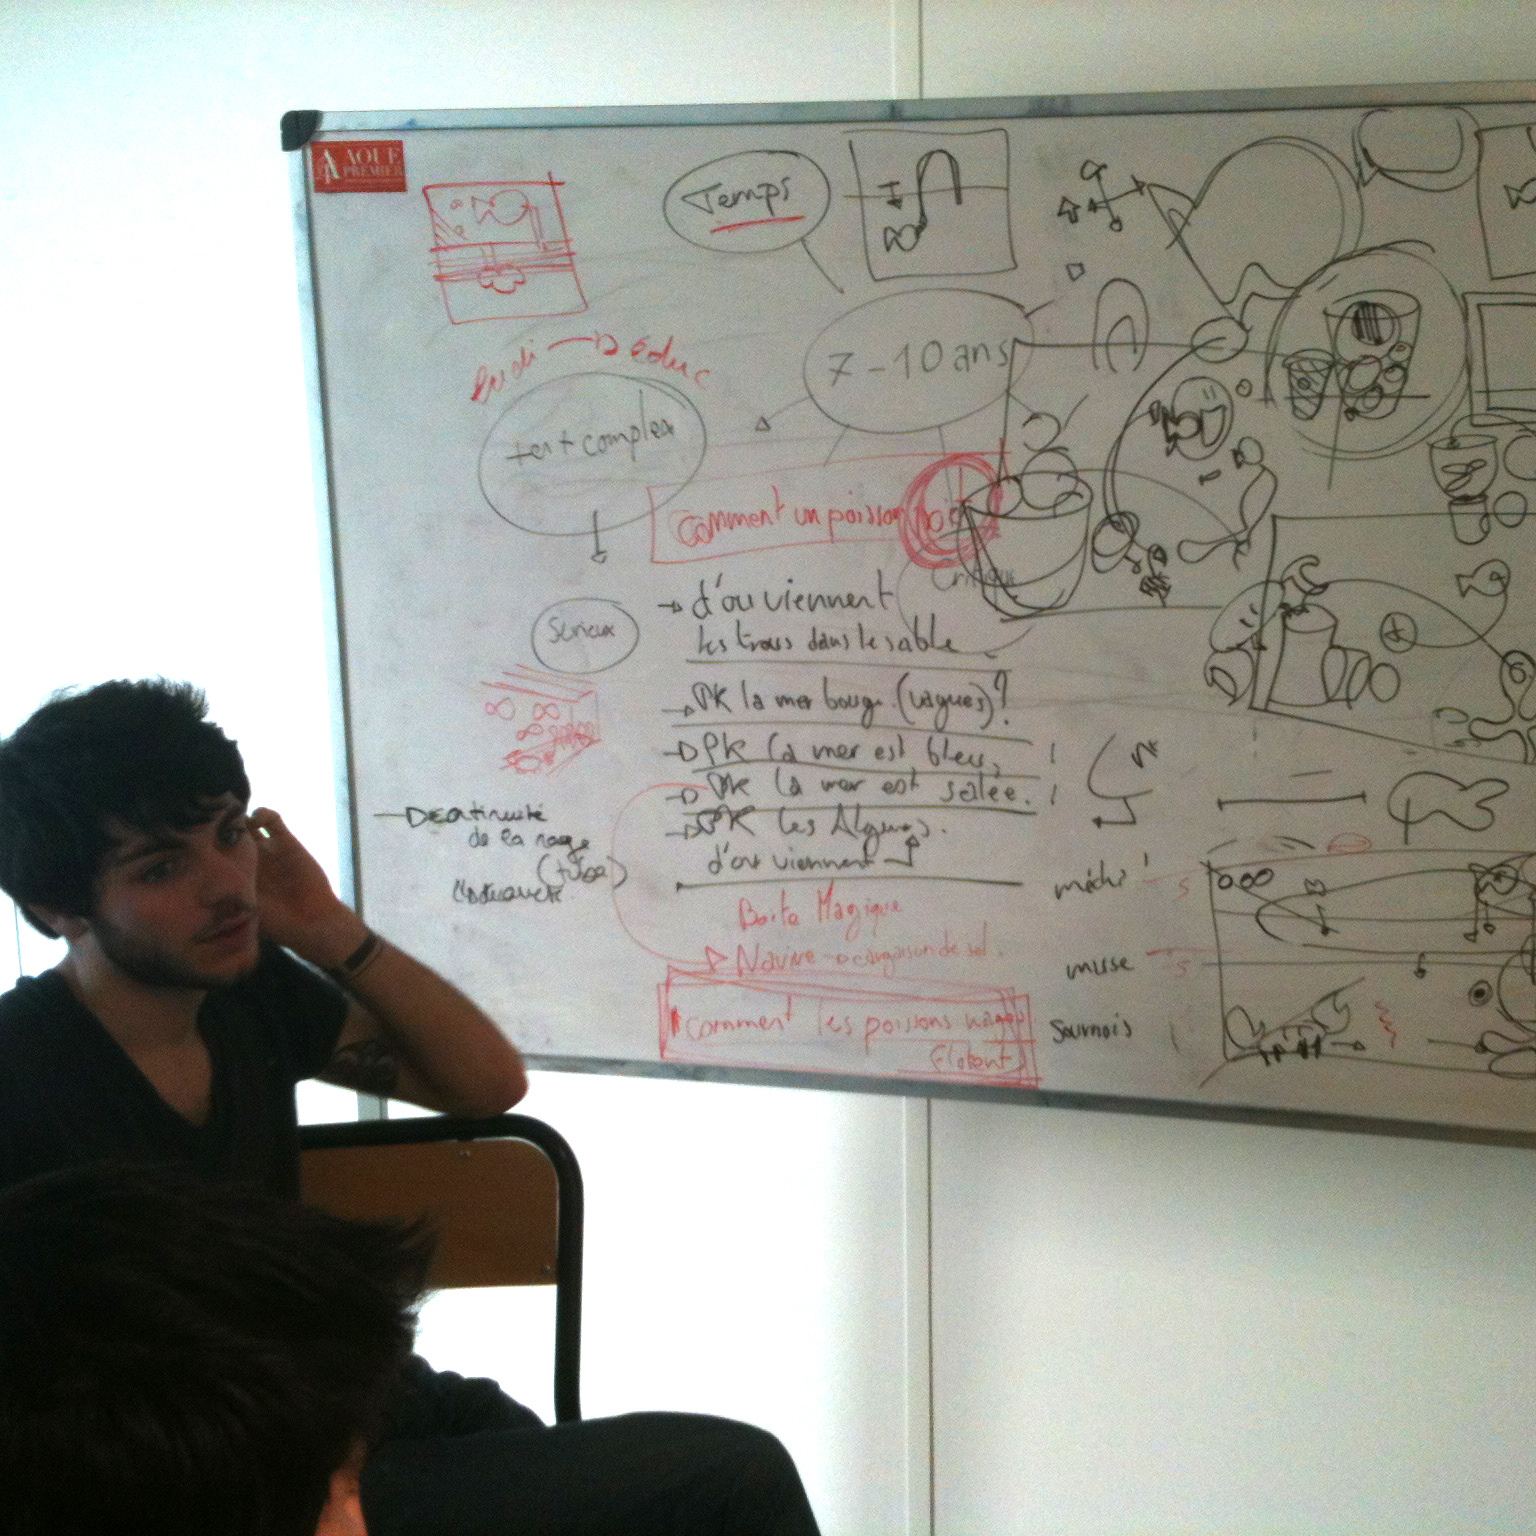 AQUE
PREMIER
Temps
7-10 ans
→ Educ
complex
Comment un poisson
Critique
→ d'ou viennent
les trous dans le sable
Sérieux
→ PK la mer bouge (vagues)?
→ PK la mer est bleu, !
→ PK la mer est salée. !
→ PK les Algues.
d'ou viennent
de la nage
(tuba)
Boite Magique
Navire → cargaison de sel.
comment les poissons nage
flotent
méchi
muse
Sournois